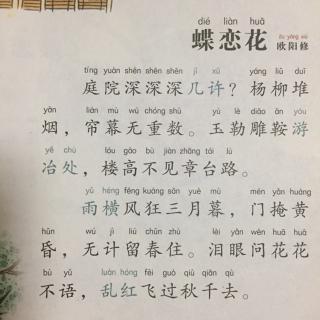 dié liàn huā
蝶恋花
ōu yáng xiū
欧阳修
tíng yuàn shēn shēn shēn jǐ xǔ yáng liǔ duī
庭院深深深几许？杨柳堆
yān lián mù wú chóng shù yù lè diāo ān yóu
烟，帘幕无重数。玉勒雕鞍游
yě chù lóu gāo bú jiàn zhāng tái lù
冶处，楼高不见章台路。
yǔ héng fēng kuáng sān yuè mù mén yǎn huáng
雨横风狂三月暮，门掩黄
hūn wú jì liú chūn zhù lèi yǎn wèn huā huā
昏，无计留春住。泪眼问花花
bù yǔ luàn hóng fēi guò qiū qiān qù
不语，乱红飞过秋千去。